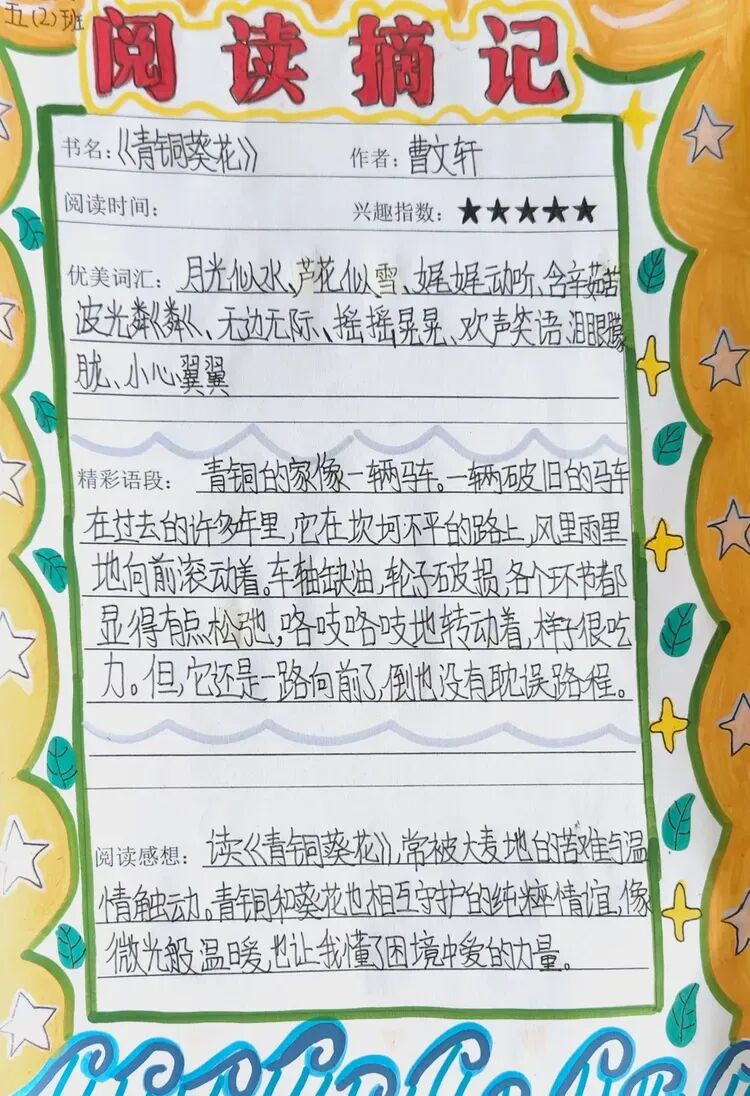 五(2)班
阅读摘记
书名:《青铜葵花》 作者:曹文轩
阅读时间: 兴趣指数:★★★★★
优美词汇: 月光似水、芦花似雪、娓娓动听、含辛茹苦
波光粼粼、无边无际、摇摇晃晃、欢声笑语、泪眼朦
胧、小心翼翼
精彩语段: 青铜的家像一辆马车。一辆破旧的马车
在过去的许多年里,它在坎坷不平的路上,风里雨里
地向前滚动着。车轴缺油,轮子破损,各个环节都
显得有点松弛,咯吱咯吱地转动着,样子很吃
力。但,它还是一路向前了,倒也没有耽误路程。
阅读感想: 读《青铜葵花》,常被大麦地的苦难与温
情触动。青铜和葵花也相互守护的纯粹情谊,像
微光般温暖,也让我懂了困境中爱的力量。